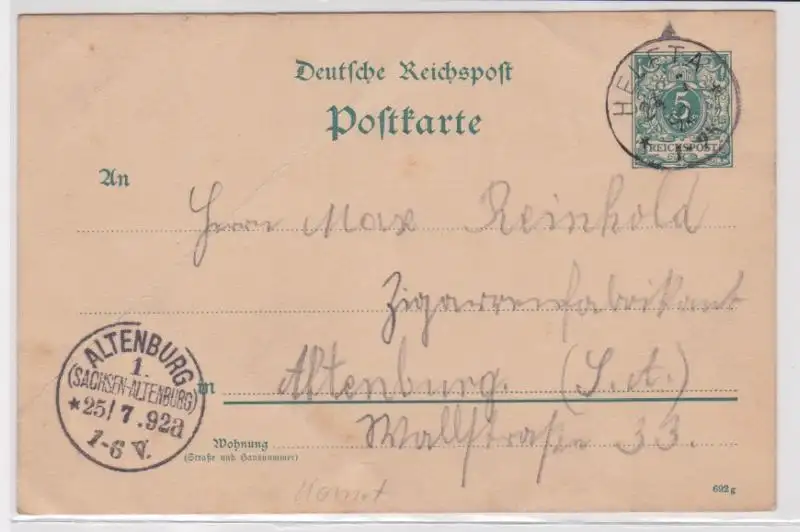 Deutsche Reichspost
Postkarte
HELETA
5
REICHSPOST
An
Herrn Max Reinhold
Zigarrenfabrikant
in Altenburg. (S. A.)
Wallstraße 33.
Wohnung
(Straße und Hausnummer)
ALTENBURG
1.
(SACHSEN-ALTENBURG)
*25/7.92a
1-6 V.
692 g